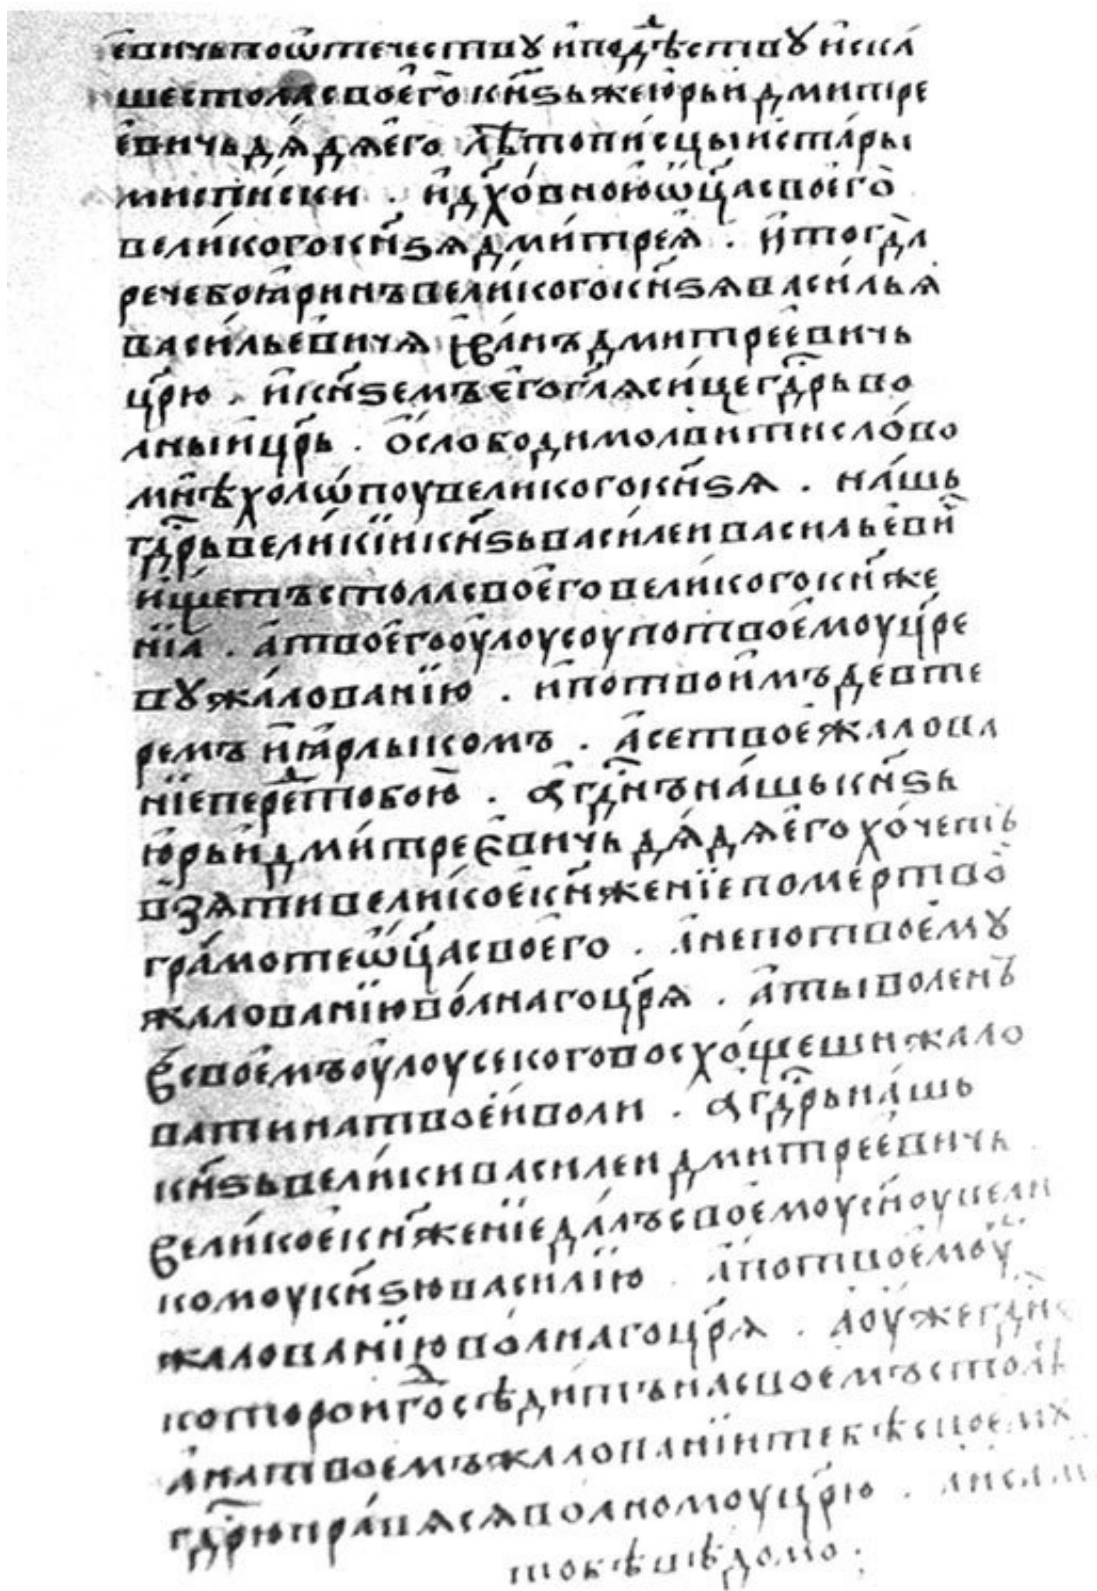 евичьпоѡтечествꙋ ипод̾ѣствꙋ иска
шестоласвоегокн҃ѕьжеюрьи дмитре
евичьдѧдѧего лѣтописцыистары
миспи́ски . идх҃овноюѡц҃асвоего
великогокн҃ѕѧдмитреꙗ . итогда
речебоꙗринъвеликогокн҃ѕѧвасильꙗ
васильевичѧ иванъдмитреевичь
цр҃ю . икн҃ѕемъегогл҃ѧсицегдр҃ьво
лныицр҃ь . ослободимолвитислово
мнѣхолѡпоувеликогокн҃ѕѧ . нашь
гдр҃ьвеликїикн҃ѕьвасилеивасильеви
ищетъстоласвоеговеликогокн҃же
нїа . атвоегооулоусоупотвоемоуцр҃е
вꙋжалованїю . ипотвоимъдевте
ремъ иꙗрлыкомъ . асетвоежалова
нїепере̾тобою . аг҃днънашькн҃ѕь
юрьидмитреевичьдѧдѧегохочетъ
взѧтивеликоекн҃женїепомертво
грамотеѡц҃асвоего . анепотвоемꙋ
жалованїюволнагоцр҃ѧ . атыволенъ
всвоемъоулоусекоговосхощешижало
ватинатвоеиволи . агдр҃ьнашь
кн҃ѕьвеликивасилеидмитреевичь
великоекн҃женїедалъсвоемоусн҃оувели
комоукн҃ѕювасилїю . апотвоемоу
жалованїюволнагоцр҃ѧ . аоужегдн҃е
котороиго̾сѣдитънасвоемъстолѣ
анатвоемъжалованїитебѣсвоемꙋ
гдр҃юправѧсѧволномоуцр҃ю . асам
тобѣвѣдомо .